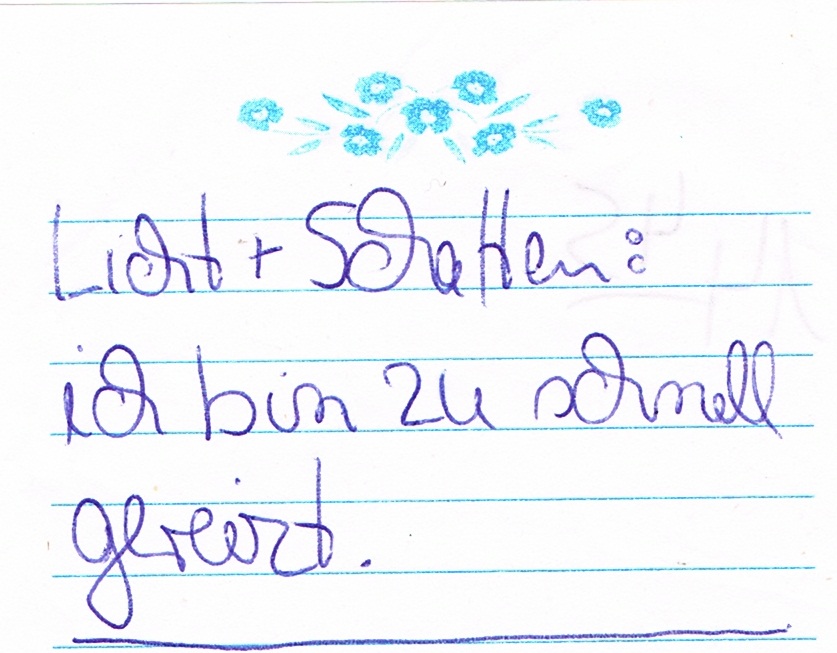 Licht + Schatten:
ich bin zu schnell
gereizt.